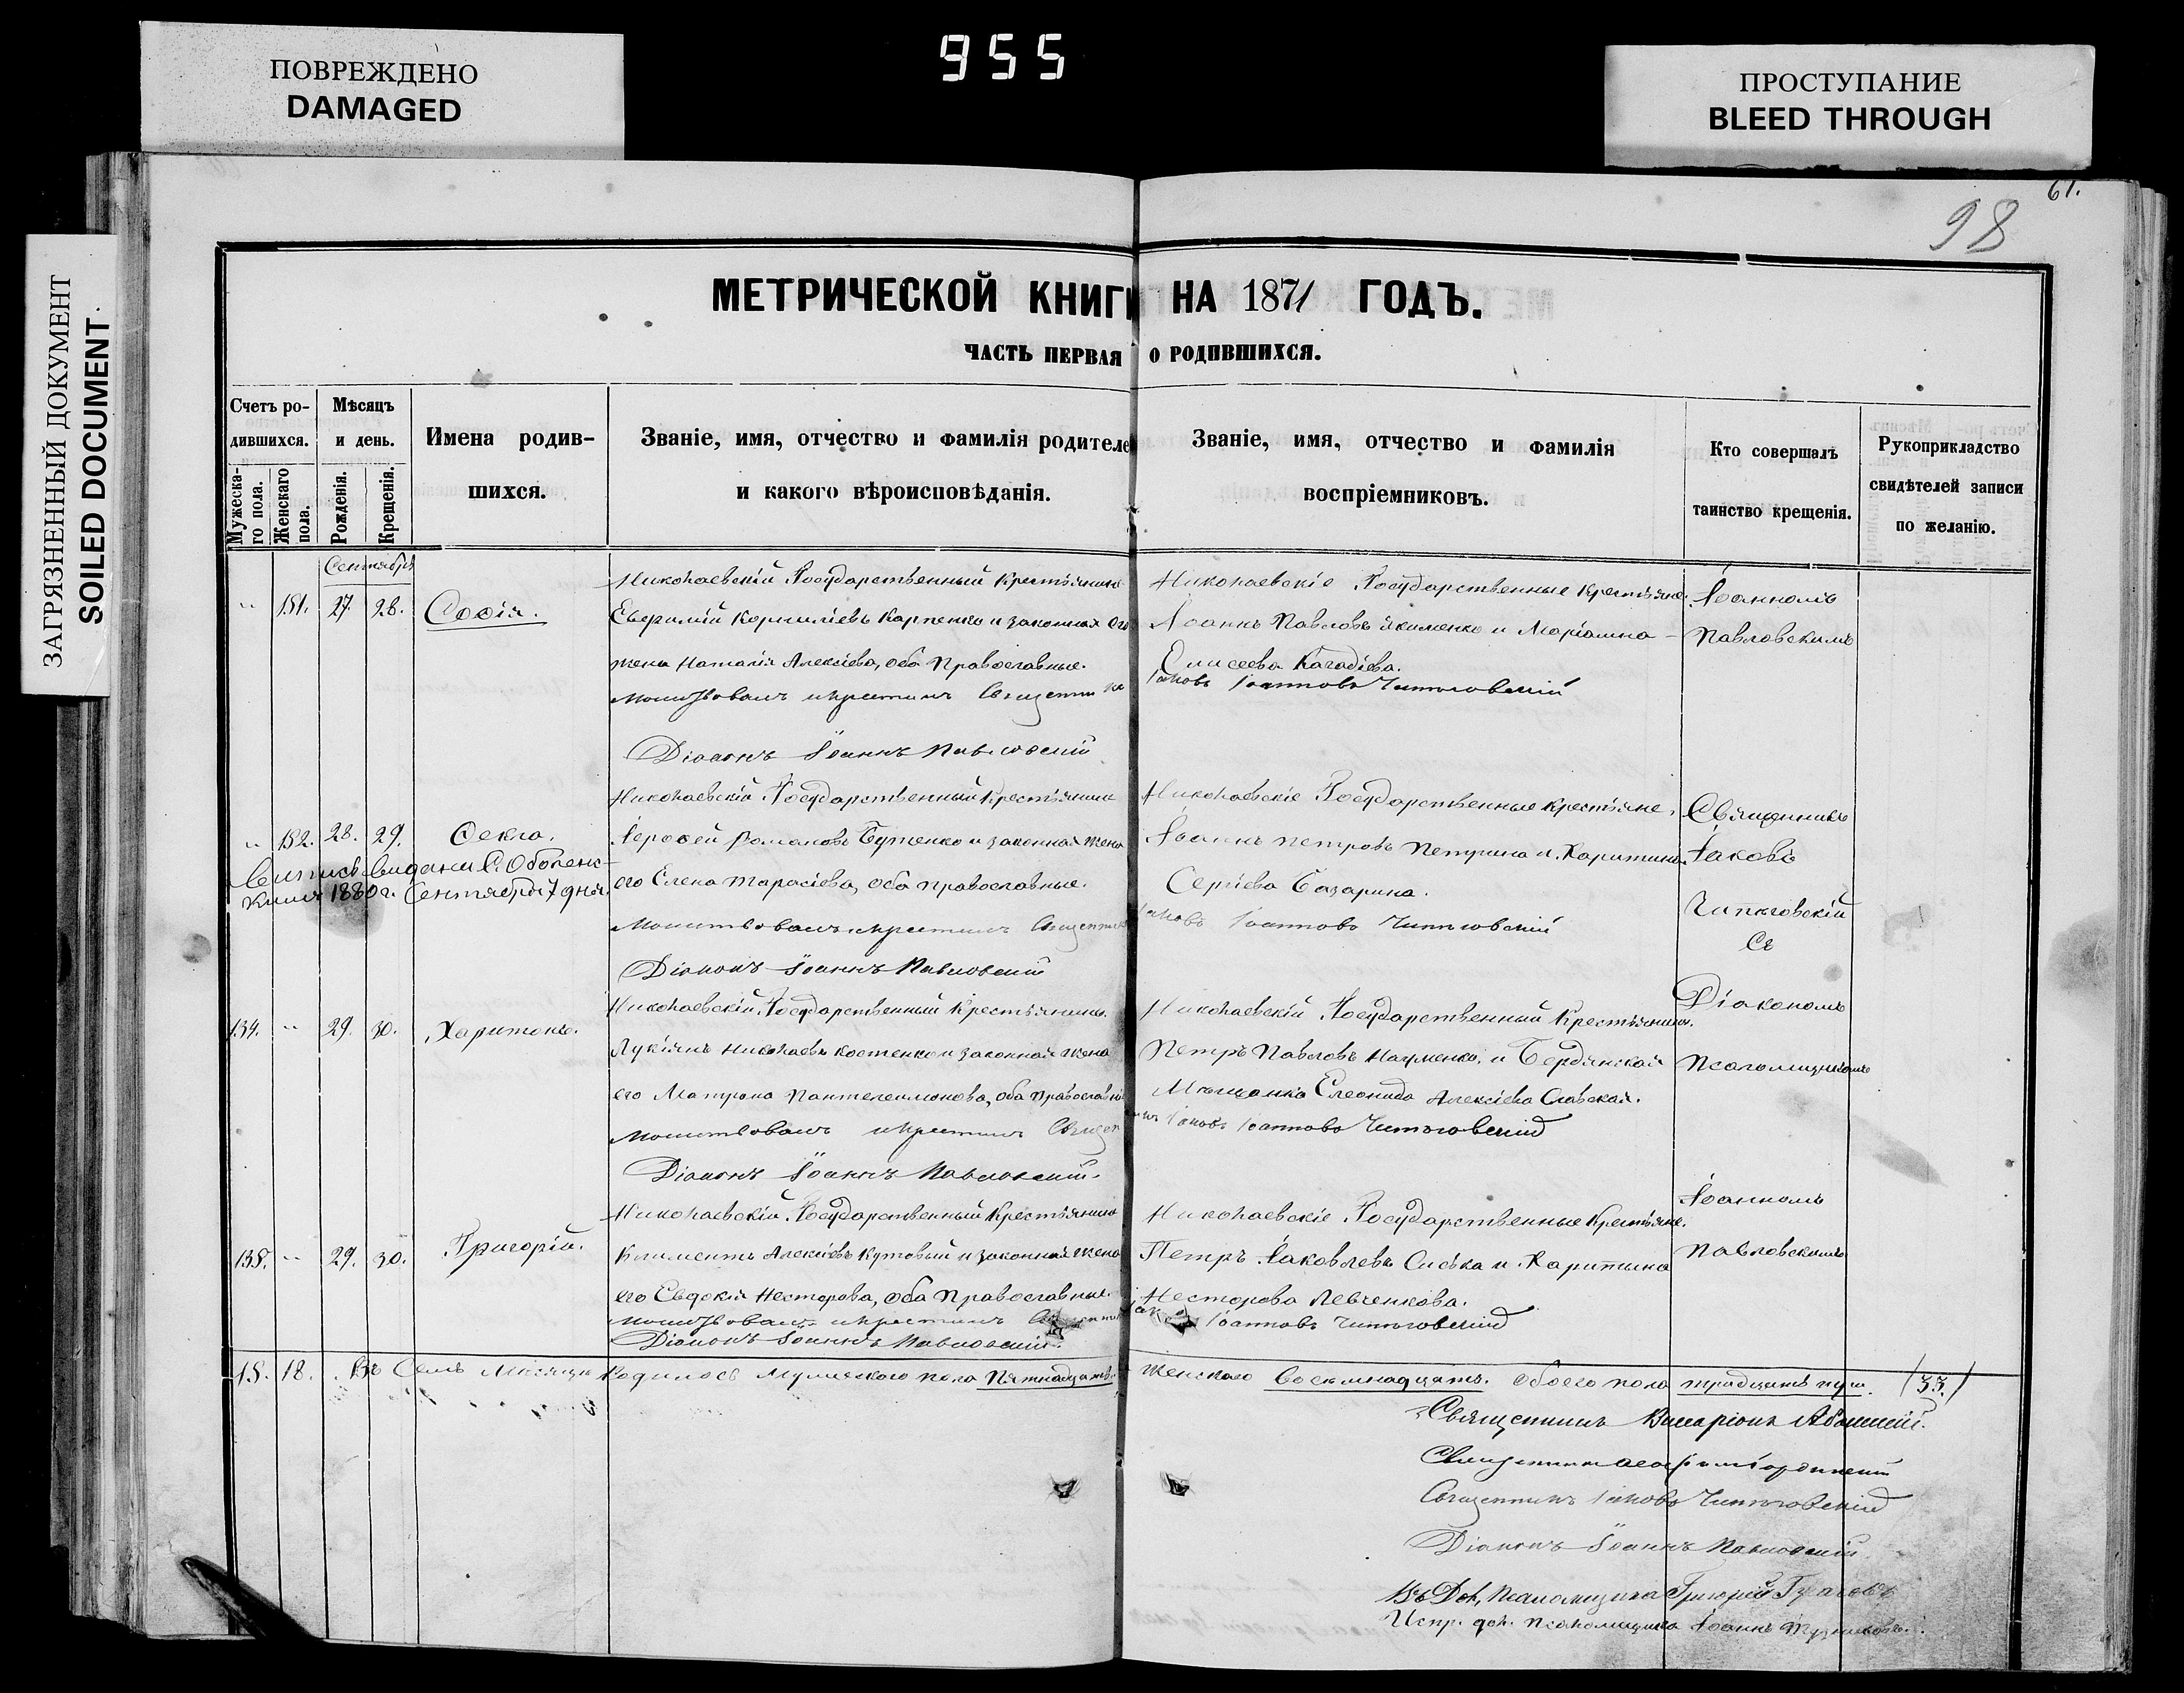 955
ПОВРЕЖДЕНО
DAMAGED
ПРОСТУПАНИЕ
BLEED THROUGH
ЗАГРЯЗНЕННЫЙ ДОКУМЕНТ
SOILED DOCUMENT
61.
98
МЕТРИЧЕСКОЙ КНИГИ НА 1871 ГОДЪ.
ЧАСТЬ ПЕРВАЯ О РОДИВШИХСЯ.
Счетъ родившихся.
Мужескаго пола.
Женскаго пола.
Мѣсяцъ и день.
Рожденія.
Крещенія.
Имена родившихся.
Званіе, имя, отчество и фамилія родителе
и какого вѣроисповѣданія.
Званіе, имя, отчество и фамилія
воспріемниковъ.
Кто совершалъ
таинство крещенія.
Рукоприкладство
свидѣтелей записи
по желанію.
Сентября
" 151. 27. 28. Софія.
Николаевскій Государственный Крестьянинъ
Евфимій Корниліевъ Карпенко и законная его
жена Наталія Алексіева, оба Православные.
Молитвовалъ и крестилъ Священни
Іаковъ Іоанновъ
Діаконъ Іоаннъ Павловскій
Николаевскіе Государственные Крестьяне.
Іоаннъ Павловъ Якименко и Маріанна
Елисеева
Іоанномъ
Павловскимъ
" 152. 28. 29. Фекла.
Выпись выдана
1880 г. Сентября 7 дня.
Николаевскій Государственный Крестьянинъ
Іерофей Романовъ Бутенко и законная жена
его Елена Тарасіева, оба православные.
Молитвовалъ и крестилъ Священник
Іаковъ Іоанновъ
Діаконъ Іоаннъ Павловскій
Николаевскіе Государственные крестьяне,
Іоаннъ Петровъ и Харитина
Сергіева
Священникъ
Іаковъ
Съ
Діакономъ
134. " 29. 30. Харитонъ.
Николаевскій Государственный Крестьянинъ.
Лукіянъ Николаевъ Костенко и законная жена
его Матрона Пантелеимонова, оба Православны
Молитвовалъ и крестилъ Священ
Іаковъ Іоанновъ
Діаконъ Іоаннъ Павловскій.
Николаевскій Государственный Крестьянинъ.
Петръ Павловъ Науменко, и Бердянская
Мѣщанка Алексіева Славская.
Псаломщикомъ
135. " 29. 30. Григорій.
Николаевскій Государственный Крестьянинъ
Климентъ Алексіевъ Кутовый и законная жена
его Евдокія Несторова, оба Православные.
Молитвовалъ и крестилъ
Іоанновъ
Діаконъ Іоаннъ Павловскій.
Николаевскіе Государственные Крестьяне.
Петръ Іаковлевъ и Харитина
Несторова Левченкова.
Іоанномъ
Павловскимъ
15. 18. Въ Семъ Мѣсяцѣ Родилось Мужескаго пола Пятнадцать. Женскаго восемнадцать. обоего пола тридцать три. /33./
Священникъ Виссаріонъ
Священникъ
Священникъ Іаковъ
Діаконъ Іоаннъ Павловскій
Псаломщика Григорій
Испр. дол. псаломщика Іоаннъ